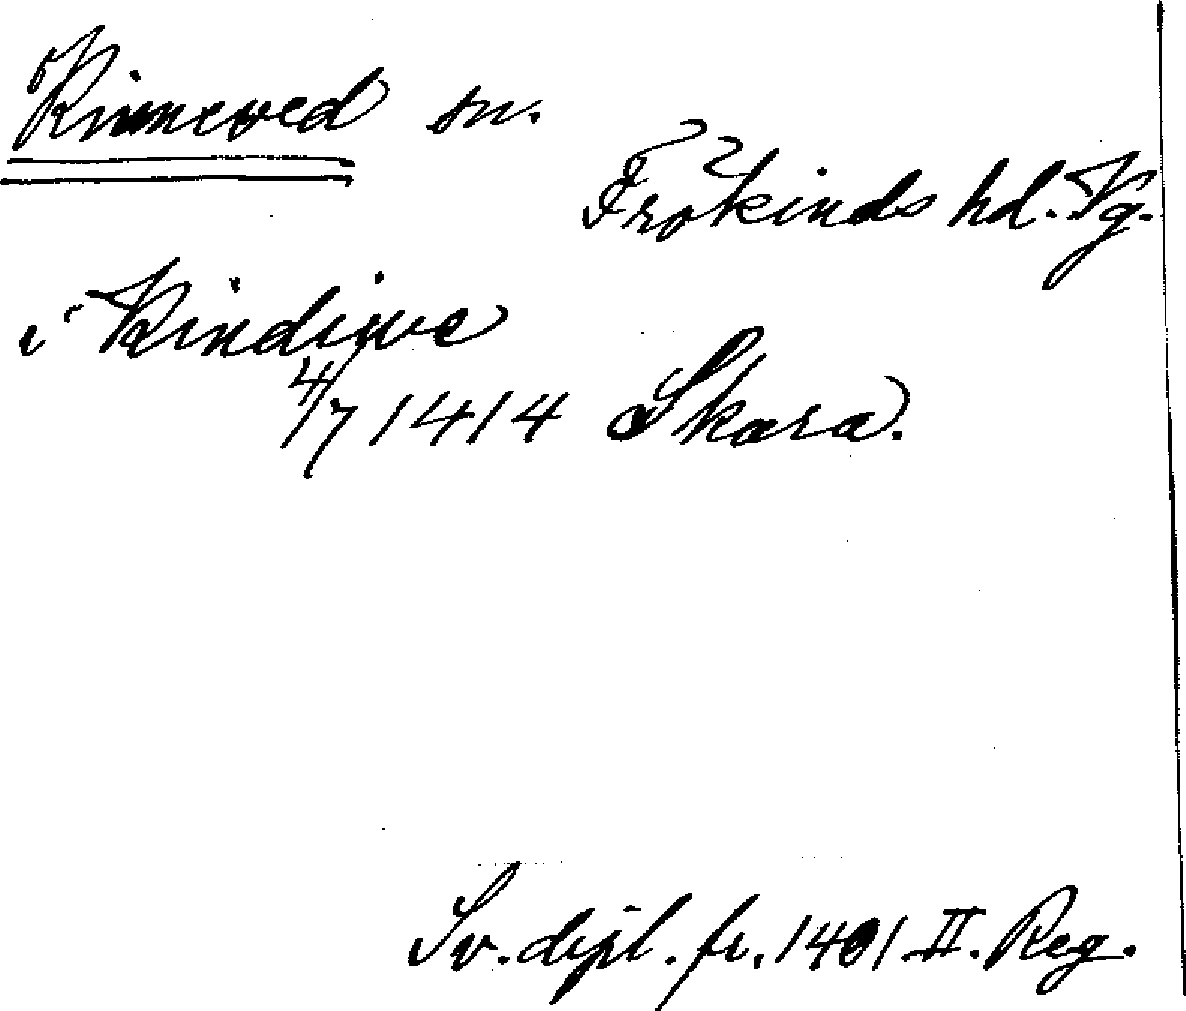 Kinneved sn.
Frökinds hd. Vg.
i Kindiwe
4/7 1414 Skara.
Sv. dipl. fr. 1401 II. Reg.